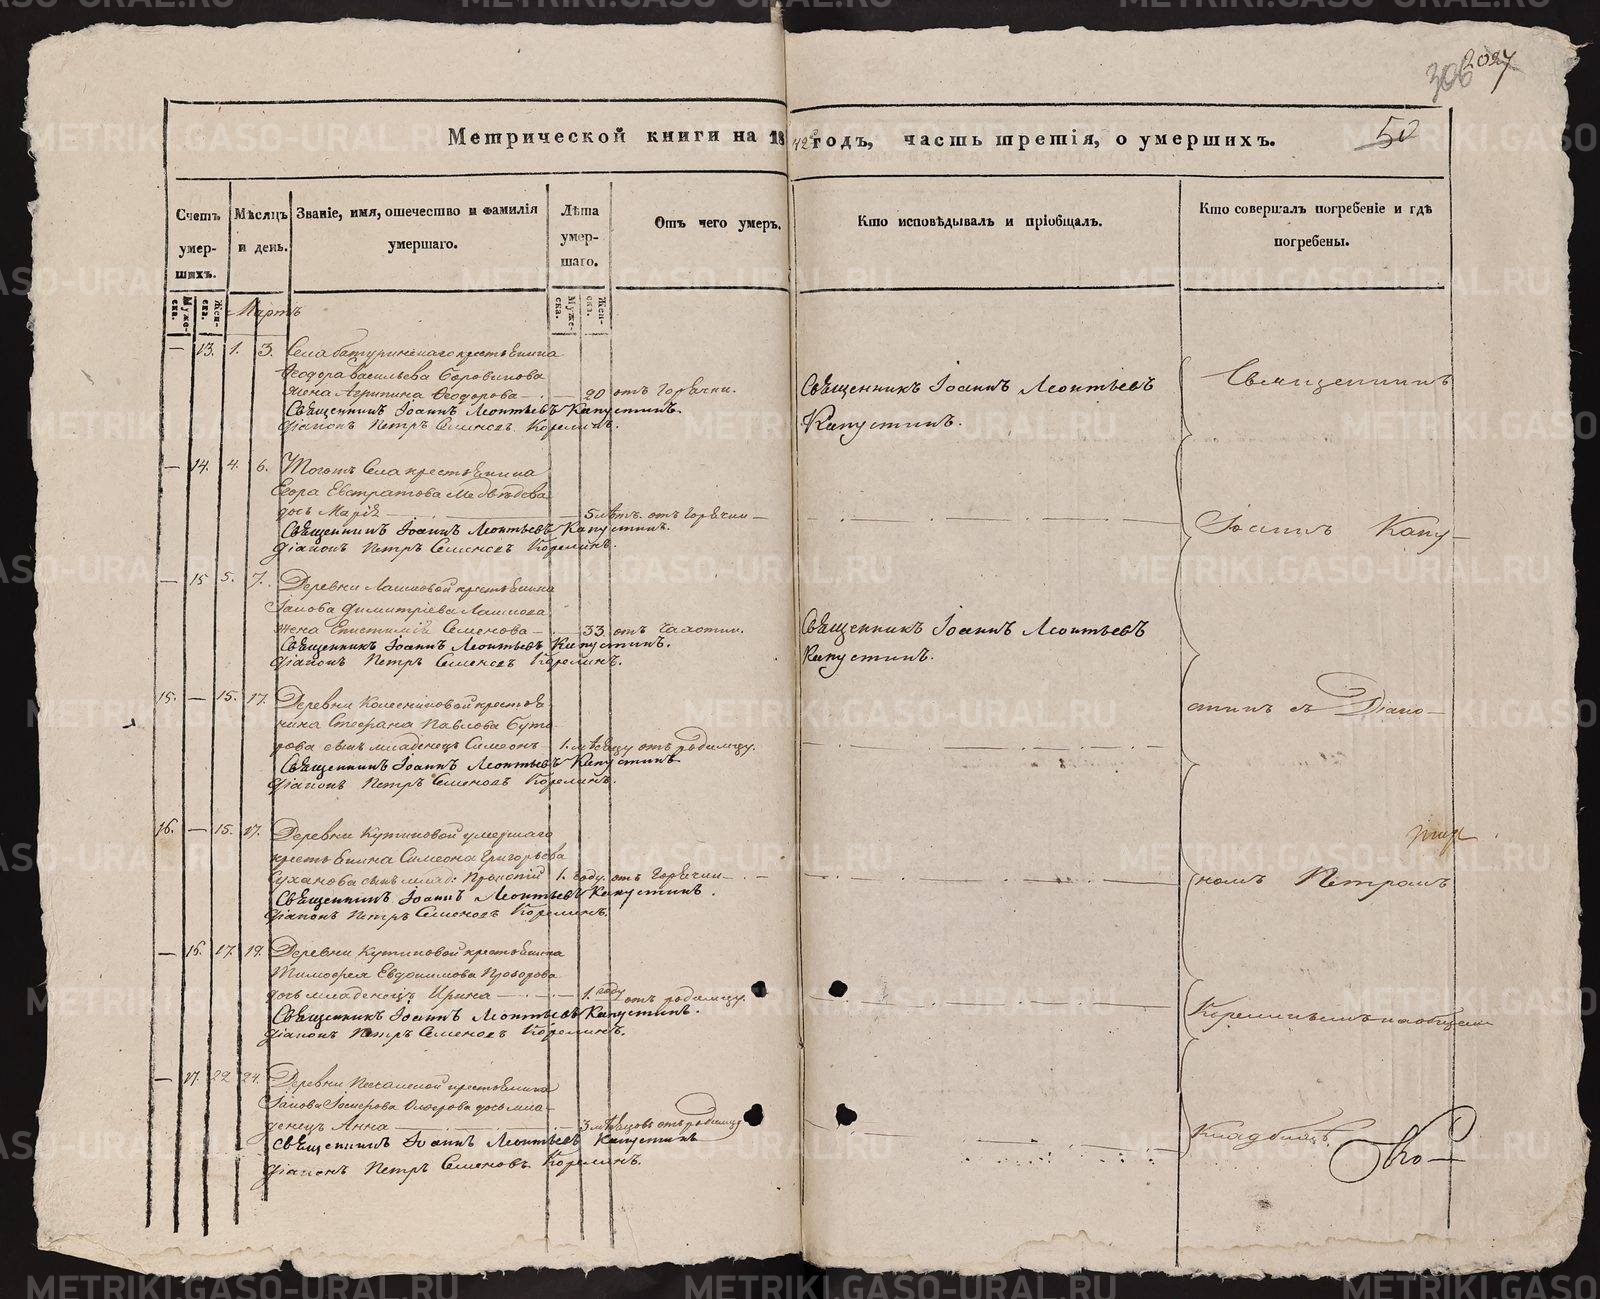 306 2027
Метрической книги на 1842 годъ, часть третія, о умершихъ. 50
Счетъ умершихъ.
Мѣсяцъ и день.
Званіе, имя, отечество и фамилія умершаго.
Лѣта умершаго.
Отъ чего умеръ.
Кто исповѣдывалъ и пріобщалъ.
Кто совершалъ погребеніе и гдѣ погребены.
Мужеска. Женска.
Мартъ
Мужеска. Женска.
— 13. 1. 3. Села батуринскаго крестьянина
Ѳеодора Васильева Боровикова
жена Агрипина Ѳеодорова — 20 отъ горячки.
Священникъ Іоаннъ Леонтьевъ Капустинъ.
Діаконъ Петръ Семеновъ Корелинъ.
Священникъ Іоаннъ Леонтьевъ
Капустинъ.
— 14. 4. 6. Тогожъ Села крестьянина
Егора Евстратова Медвѣдева
дочь Марія — 5 лѣтъ. отъ горячки —
Священникъ Іоаннъ Леонтьевъ Капустинъ.
Діаконъ Петръ Семеновъ Корелинъ.
— 15 5. 7. Деревни Лашмовой крестьянина
Іакова Димитріева
жена Епистимія Семенова — 33. отъ чахотки.
Священникъ Іоаннъ Леонтьевъ Капустинъ.
Діаконъ Петръ Семеновъ Корелинъ.
Священникъ Іоаннъ Леонтьевъ
Капустинъ.
15. — 15. 17. Деревни Колесниковой крестья
нина Стефана Павлова Буто
рова сынъ младенецъ Симеонъ — 1. мѣсяцу отъ родимцу.
Священникъ Іоаннъ Леонтьевъ Капустинъ
Діаконъ Петръ Семеновъ Корелинъ.
16. — 15. 17. Деревни Кутиковой умершаго
крестьянина Симеона Григорьева
Суханова сынъ млад: Прокопій 1. году. отъ горячки —
Священникъ Іоаннъ Леонтьевъ Капустинъ.
Діаконъ Петръ Семеновъ Корелинъ.
— 16. 17. 19. Деревни Кутиковой крестьянина
Тимофея Евдокимова
дочь младенецъ Ирина — 1. году отъ родимцу.
Священникъ Іоаннъ Леонтьевъ Капустинъ.
Діаконъ Петръ Семеновъ Корелинъ.
— 17. 22 24. Деревни крестьянина
Іакова дочь мла-
денецъ Анна — 3 мѣсяцовъ отъ родимцу
Священникъ Іоаннъ Леонтьевъ Капустинъ
Діаконъ Петръ Семеновъ Корелинъ.
Священникъ
Іоаннъ Капу—
стинъ съ Діако—
номъ Петромъ
Корелинымъ на общемъ
Кладбищѣ.
METRIKI.GASO-URAL.RU